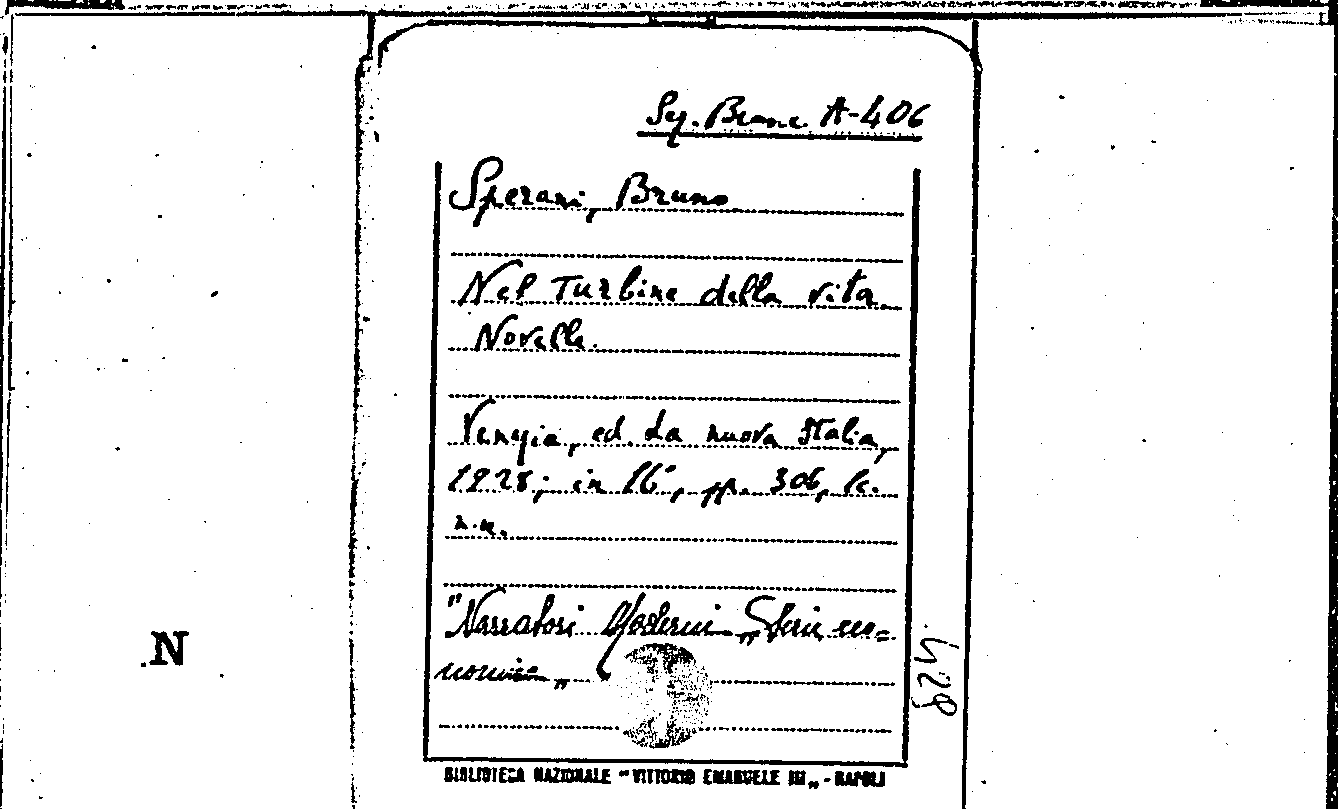 Seq. Branc. A-406
Sperani, Bruno
Nel Turbine della vita.
Novelle.
Venezia, ed. La nuova Italia,
1928; in 16°, pp. 306, lc.
n.n.
"Narratori Moderni „ Serie eco=
nomica „
824
N
BIBLIOTECA NAZIONALE "VITTORIO EMANUELE III„ - NAPOLI